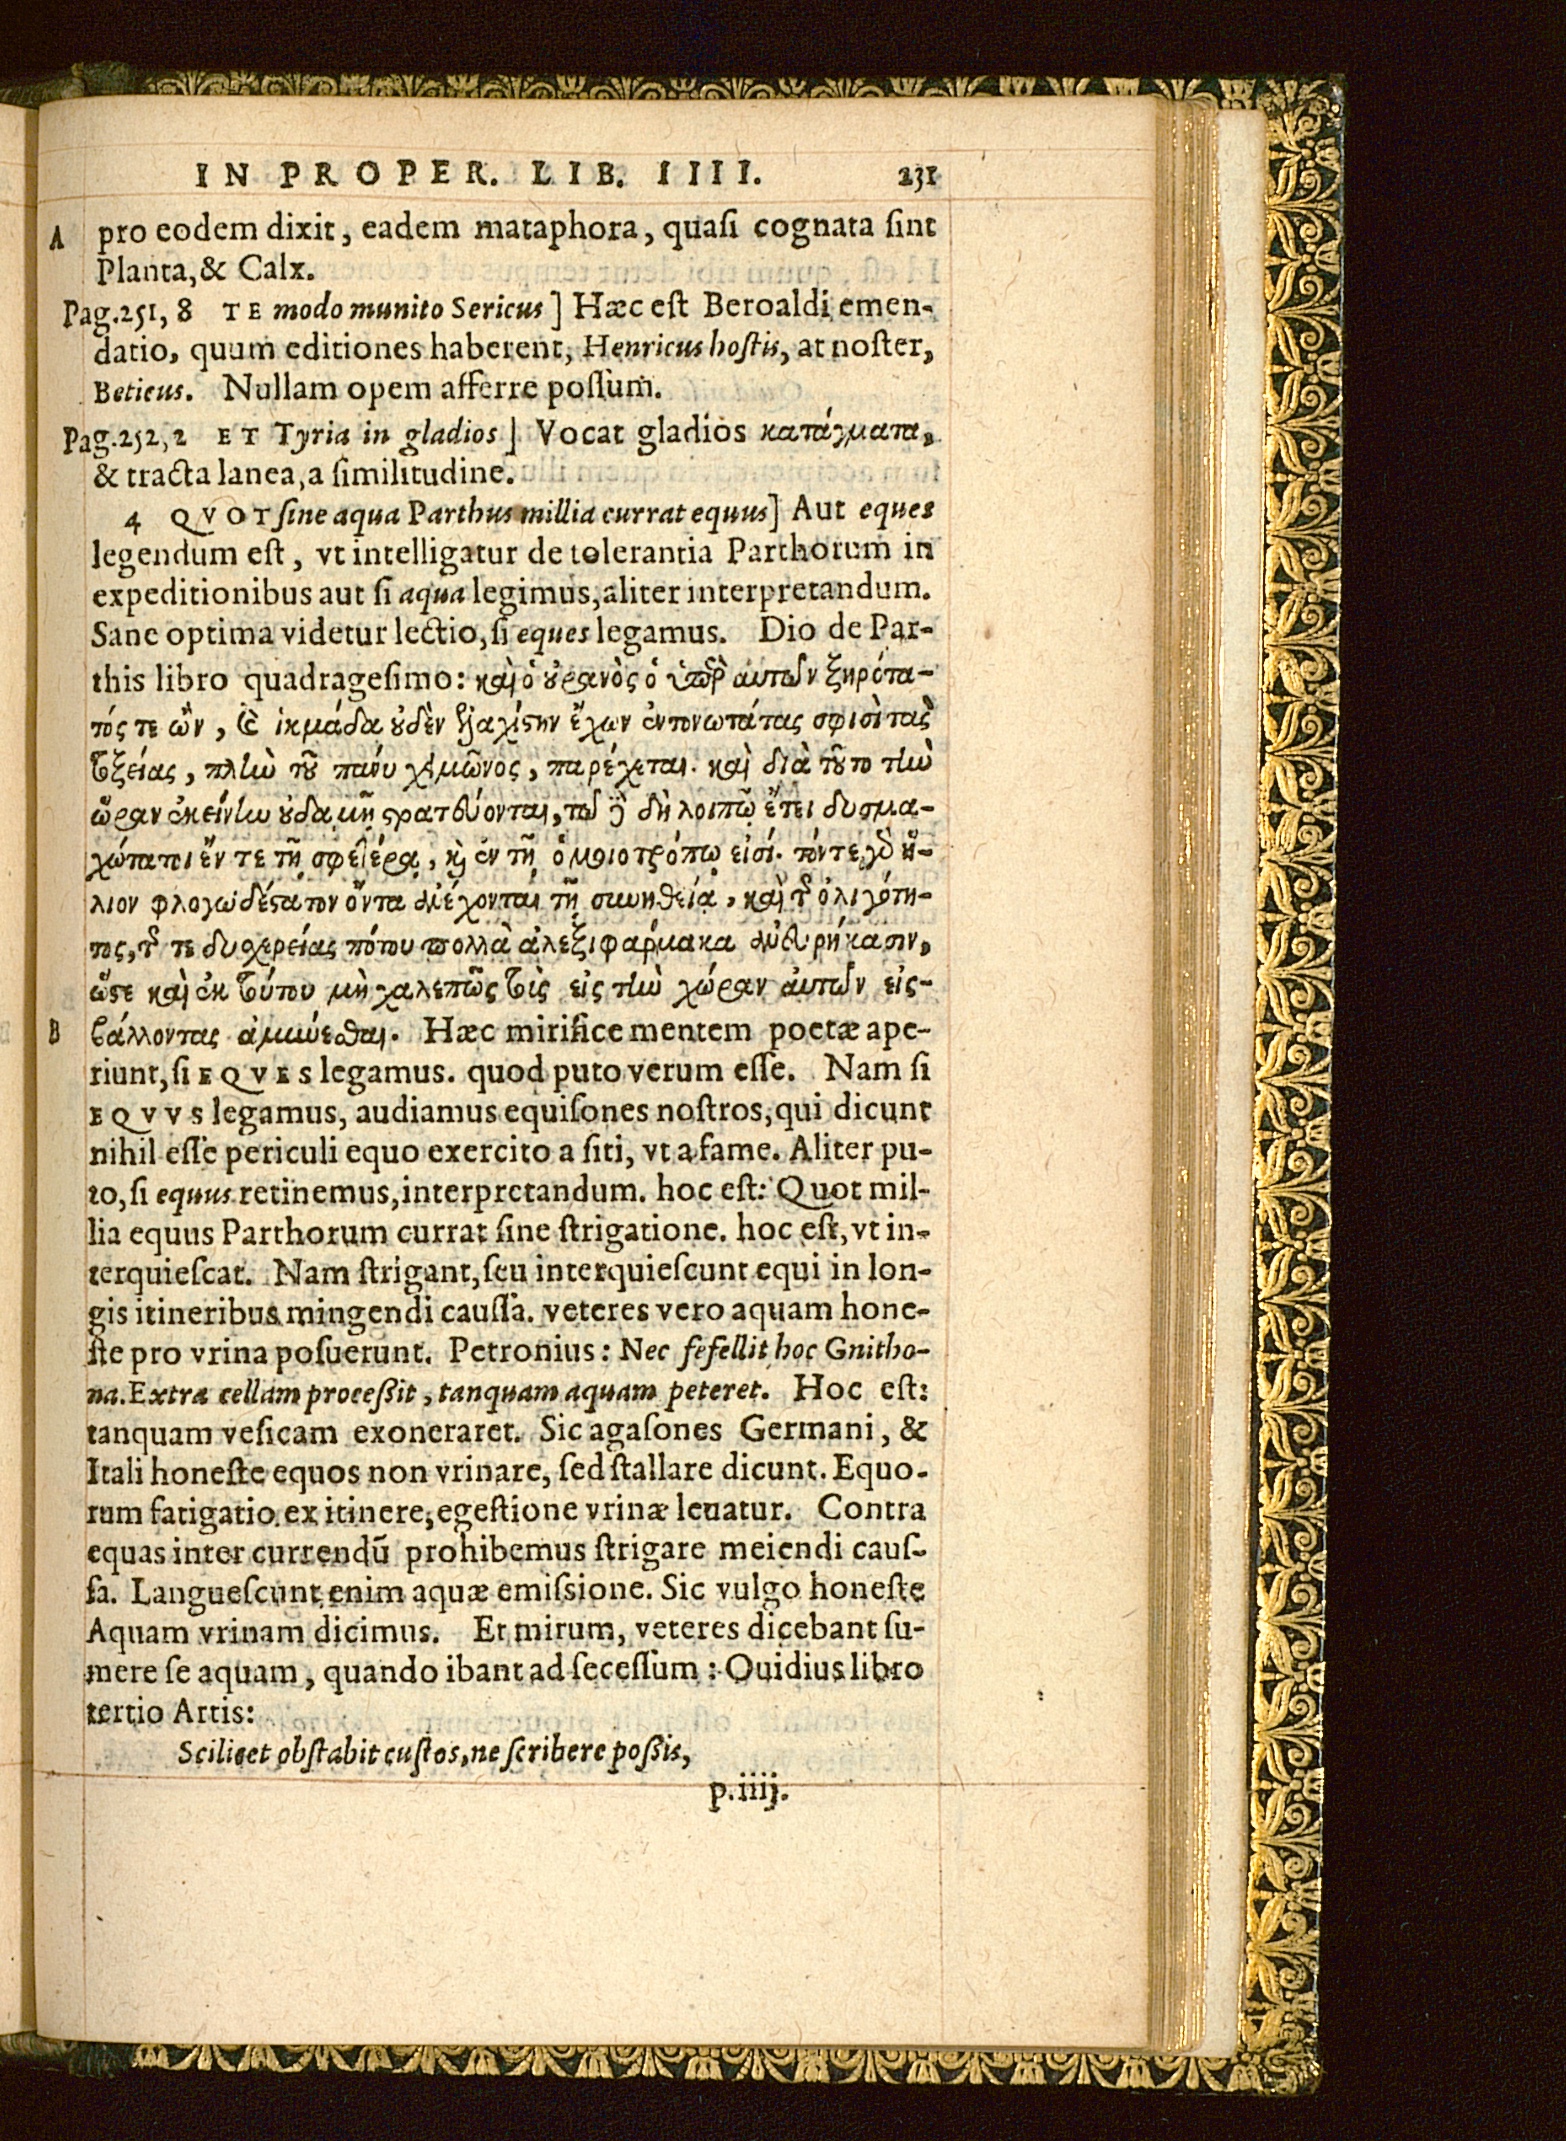 IN PROPER. LIB. IIII. 231
A pro eodem dixit, eadem mataphora, quaſi cognata ſint
Planta, & Calx.
Pag.251, 8 TE modo munito Sericus] Hæc eſt Beroaldi emen-
datio, quum editiones haberent, Henricus hoſtis, at noſter,
Beticus. Nullam opem afferre poſſum.
Pag.252, 2 ET Tyria in gladios] Vocat gladios κατάγματα,
& tracta lanea, a ſimilitudine.
4 QVOT ſine aqua Parthus millia currat equus] Aut eques
legendum eſt, vt intelligatur de tolerantia Parthorum in
expeditionibus aut ſi aqua legimus, aliter interpretandum.
Sane optima videtur lectio, ſi eques legamus. Dio de Par-
this libro quadrageſimo: καὶ ὁ οὐρανὸς ὁ ὑπὲρ αὐτῶν ξηρότα-
τός τε ὢν, καὶ ἰκμάδα οὐδὲ ἐλαχίστην ἔχων ἐντονωτάτας σφισὶ τὰς
τοξείας, πλὴν τοῦ πάνυ χειμῶνος, παρέχεται. καὶ διὰ τοῦτο τὴν
ὥραν ἐκείνην οὐδαμῇ στρατεύονται, τῷ δὲ δὴ λοιπῷ ἔτει δυσμα-
χώτατοι ἔν τε τῇ σφετέρᾳ, καὶ ἐν τῇ ὁμοιοτρόπῳ εἰσί. τόν τε γὸ ἥ-
λιον φλογωδέστατον ὄντα ἀνέχονται τῇ συνηθείᾳ, καὶ τῆς ὀλιγότη-
τος, τῆς τε δυσχερείας πότου πολλὰ ἀλεξιφάρμακα ἀνευρήκασιν,
ὥστε καὶ ἐκ τούτου μὴ χαλεπῶς τοὶς εἰς τὴν χώραν αὐτῶν εἰς-
B βάλλοντας ἀμύνεσθαι. Hæc mirifice mentem poetæ ape-
riunt, ſi EQVES legamus. quod puto verum eſſe. Nam ſi
EQVVS legamus, audiamus equiſones noſtros, qui dicunt
nihil eſſe periculi equo exercito a ſiti, vt a fame. Aliter pu-
to, ſi equus retinemus, interpretandum. hoc eſt: Quot mil-
lia equus Parthorum currat ſine ſtrigatione. hoc eſt, vt in-
terquieſcat. Nam ſtrigant, ſeu interquieſcunt equi in lon-
gis itineribus mingendi cauſſa. veteres vero aquam hone-
ſte pro vrina poſuerunt. Petronius: Nec fefellit hoc Gnitho-
na. Extra cellam proceßit, tanquam aquam peteret. Hoc eſt:
tanquam veſicam exoneraret. Sic agaſones Germani, &
Itali honeſte equos non vrinare, ſed ſtallare dicunt. Equo-
rum fatigatio ex itinere, egeſtione vrinæ leuatur. Contra
equas inter currendū prohibemus ſtrigare meiendi cauſ-
ſa. Langueſcunt enim aquæ emiſsione. Sic vulgo honeſte
Aquam vrinam dicimus. Et mirum, veteres dicebant ſu-
mere ſe aquam, quando ibant ad ſeceſſum: Ouidius libro
tertio Artis:
Scilicet obſtabit cuſtos, ne ſcribere poßis,
p.iiij.